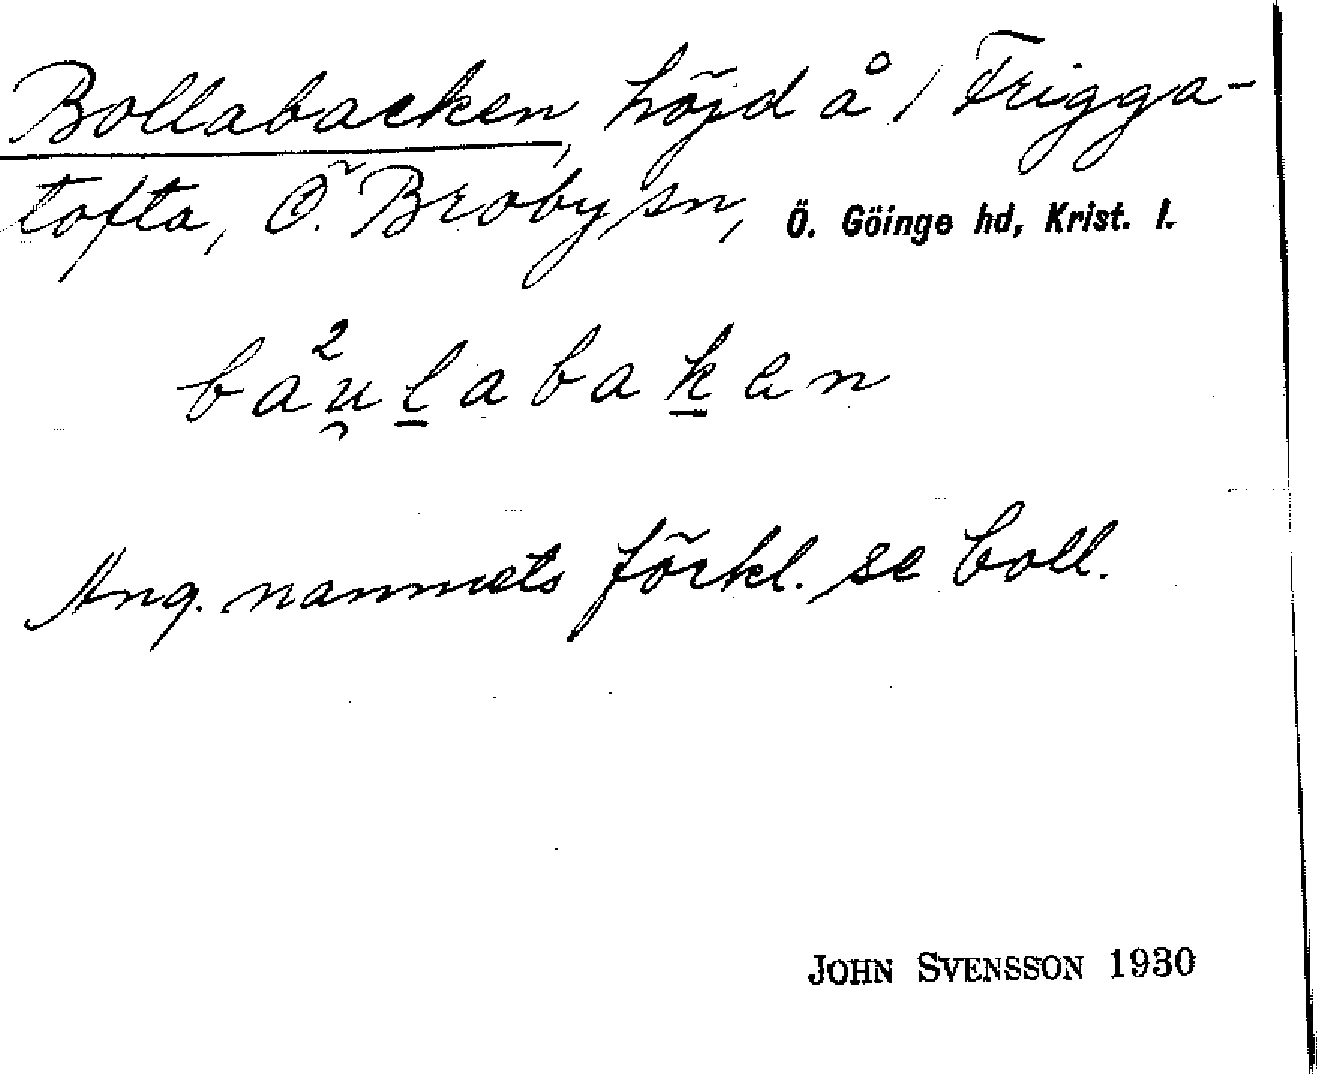 Bollabacken, höjd å / Frigga-
tofta, Ö. Broby sn, Ö. Göinge hd, Krist. l.
bau̯²l̲abak̲en
Ang. namnets förkl. se boll.
JOHN SVENSSON 1930